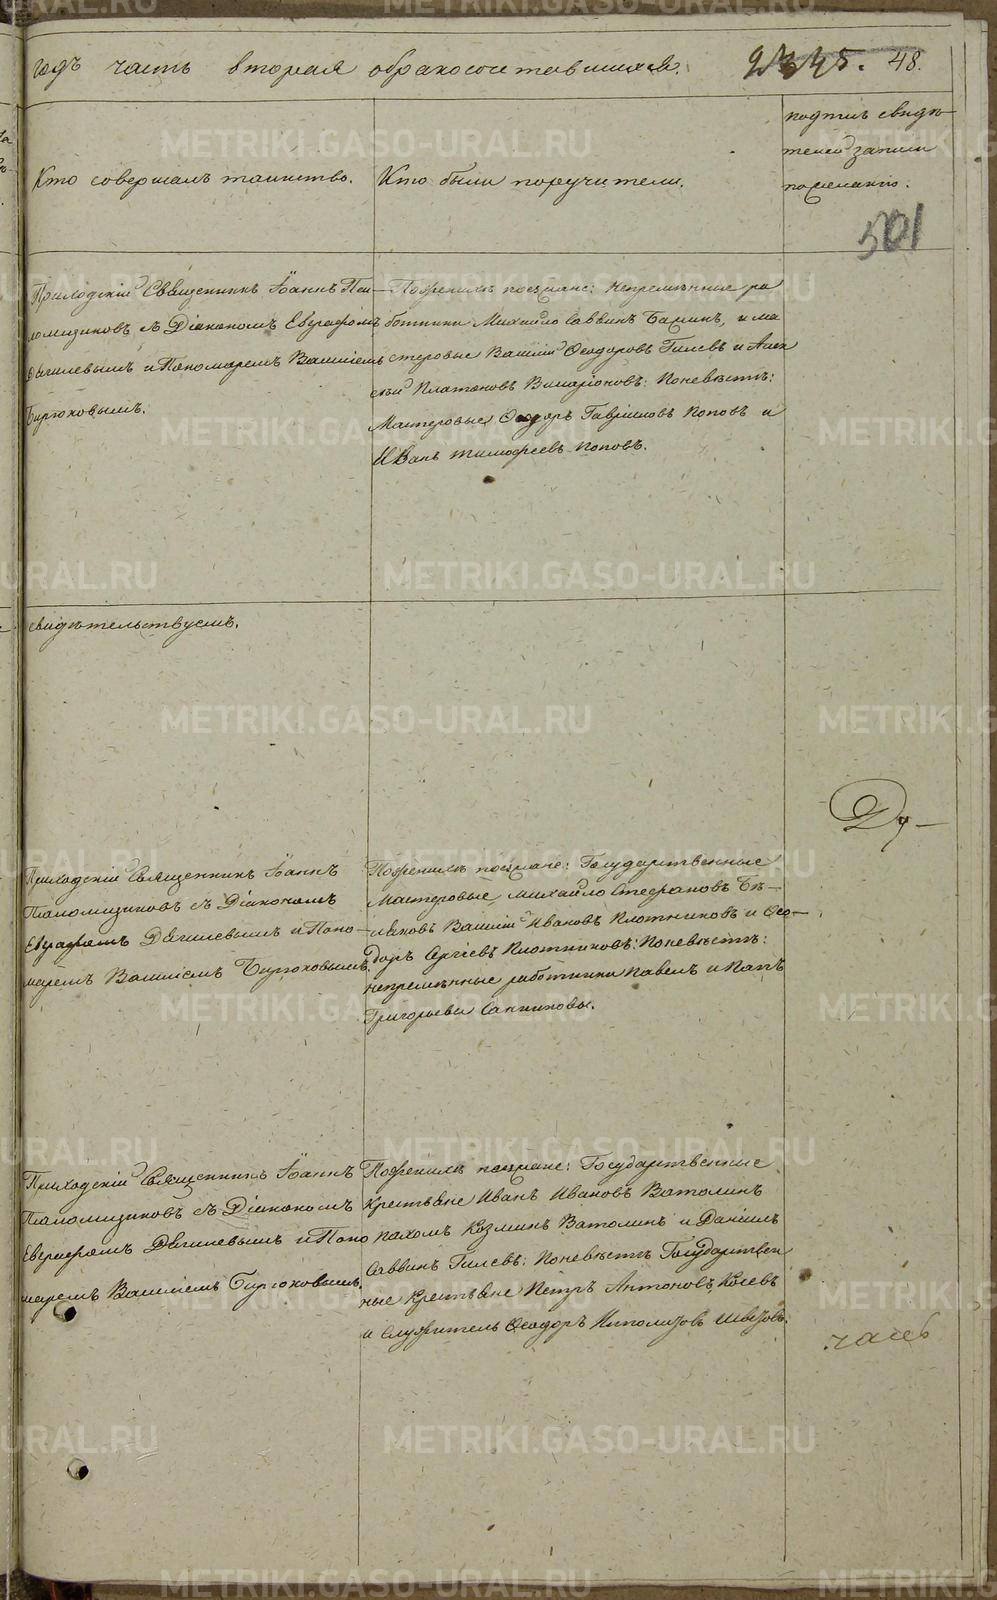 годъ часть вторая о бракосочетавшихся.
48.
Кто совершалъ таинство.
Кто были поручители.
подпись свидѣ-
телей записи
по желанію.
501
Приходскій Священникъ Іоаннъ
ломщиковъ съ Діакономъ Евграфомъ
Дягилевымъ и Пономаремъ Василіемъ
Бирюковымъ.
По женихѣ поезжане: Непремѣнные ра
ботники Михайло Саввинъ и ма
стеровые Василій Ѳеодоровъ Гилевъ и Алек
сѣй Платоновъ Иларіоновъ: По невѣстѣ:
Мастеровые Ѳеодоръ Гавриловъ Поповъ и
Иванъ Тимофеевъ Поповъ.
свидѣтельствуемъ.
Приходскій Священникъ Іоаннъ
Паломщиковъ съ Діакономъ
Евграфомъ Дягилевымъ и Поно-
маремъ Василіемъ Бирюковымъ.
По женихѣ поезжане: Государственные
Мастеровые Михайло Стефановъ Бѣ-
ляковъ Василій Ивановъ Плотниковъ и Ѳео-
доръ Сергіевъ Плотниковъ: По невѣстѣ:
непремѣнные работники Павелъ и
Григорьевы Санниковы.
Приходскій Священникъ Іоаннъ
Паломщиковъ съ Діакономъ
Евграфомъ Дягилевымъ и Поно
маремъ Василіемъ Бирюковымъ.
По женихѣ поезжане: Государственные
Крестьяне Иванъ Ивановъ Ватолинъ
Пахомъ Козминъ Ватолинъ и Даніилъ
Саввинъ Гилевъ: По невѣстѣ Государствен
ные Крестьяне Петръ Антоновъ
и служитель Ѳеодоръ Швецовъ.
METRIKI.GASO-URAL.RU